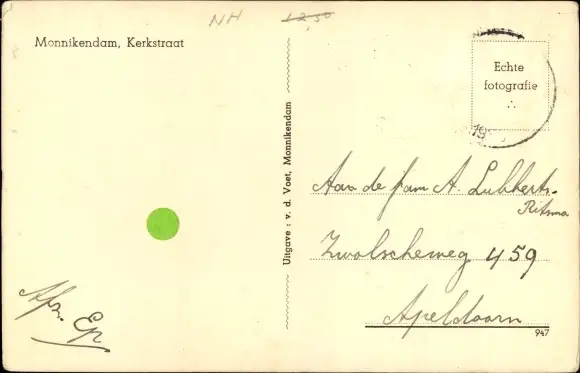 NH
12,50
Monnikendam, Kerkstraat
Echte
fotografie
19
Uitgave : v. d. Voet, Monnikendam
Aan de fam A. Lubberts-
Ritsma
Zwolscheweg 459
Apeldoorn
947
Afz. Ep